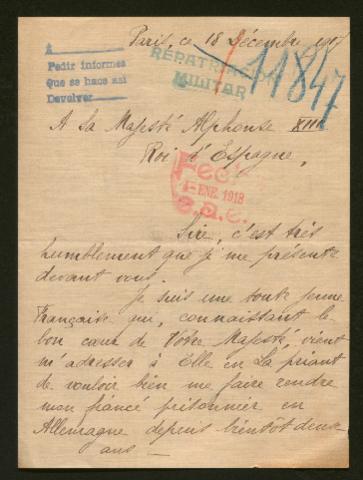 Paris, ce 18 Décembre 1917
A
Pedir informes
Que se hace asi
Devolver
REPATRIACION
MILITAR
11847
A Sa Majesté Alphonse XIII
Roi d'Espagne,
Fecha
1-ENE. 1918
s.a.e.
Sire, c'est très
humblement que je me présente
devant vous.
Je suis une toute jeune
Française qui, connaissant le
bon cœur de Votre Majesté, vient
m'adresser à Elle en La priant
de vouloir bien me faire rendre
mon fiancé prisonnier en
Allemagne depuis bientôt deux
ans —